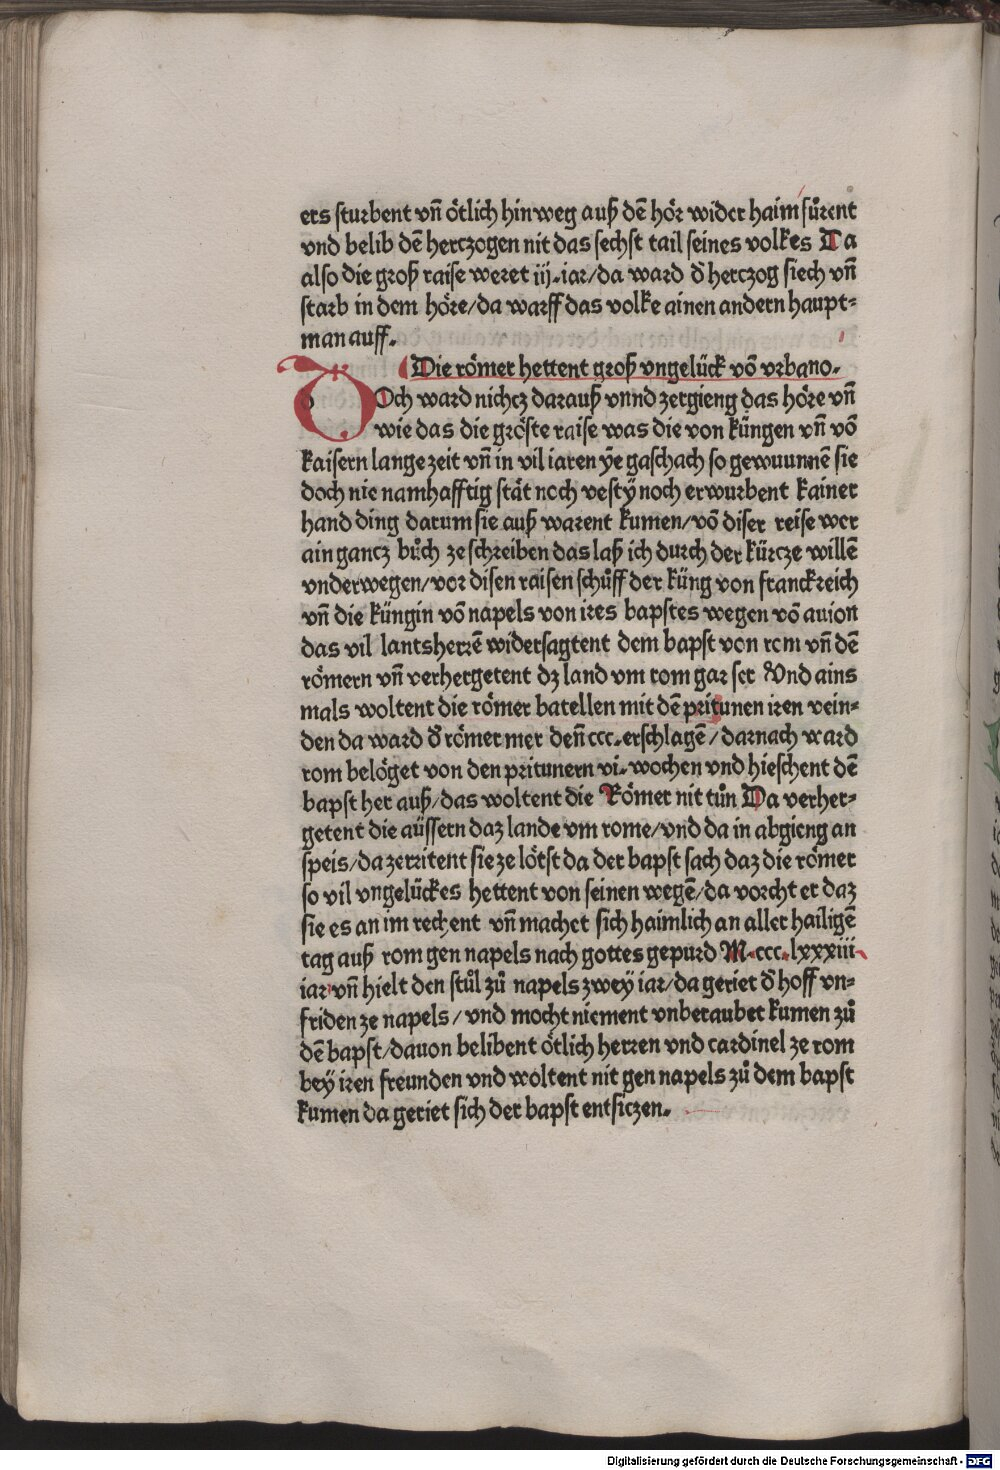 ers sturbent vñ ötlich hinweg auß dē hör wider haim fůrent
vnd belib dē herczogen nit das sechst tail seines volkes Da
also die groß raise weret iij. iar/da ward d̕ herczog siech vñ
starb in dem höre/da warff das volke ainen andern haupt⸗
man auff.
Die römer hettent groß vngelück vō vrbano.
DOch ward nichcz darauß vnnd zergieng das höre vñ
wie das die gröste raise was die von küngen vñ vō
kaisern lange zeit vñ in vil iaren ye gaschach so gewuunnē sie
doch nie namhafftig stät noch vestÿ noch erwurbent kainer
hand ding darum sie auß warent kumen/vō diser reise wer
ain gancz bůch ze schreiben das laß ich durch der kürcze willē
vnderwegen/vor disen raisen schůff der küng von franckreich
vñ die küngin vō napels von ires bapstes wegen vō auion
das vil lantsherrē widersagtent dem bapst von rom vñ dē
römern vñ verhergetent dz land vm rom gar ser Vnd ains
mals woltent die römer batellen mit dē pritunen iren vein⸗
den da ward d̕ römer mer deñ ccc. erschlagē/darnach ward
rom belöget von den pritunern vi. wochen vnd hieschent dē
bapst her auß/das woltent die Römer nit tůn Da verher⸗
getent die aüssern daz lande vm rome/vnd da in abgieng an
speis/da zerritent sie ze lötst da der bapst sach daz die römer
so vil vngelückes hettent von seinen wegē/da vorcht er daz
sie es an im rechent vñ machet sich haimlich an aller hailigē
tag auß rom gen napels nach gottes gepurd M.ccc.lxxxiii
iar vñ hielt den stůl zů napels zwey iar/da geriet d̕ hoff vn⸗
friden ze napels/vnd mocht niement vnberaubet kumen zů
dē bapst/dauon belibent ötlich herren vnd cardinel ze rom
bey iren freunden vnd woltent nit gen napels zů dem bapst
kumen da geriet sich der bapst entsiczen.
Digitalisierung gefördert durch die Deutsche Forschungsgemeinschaft - DFG